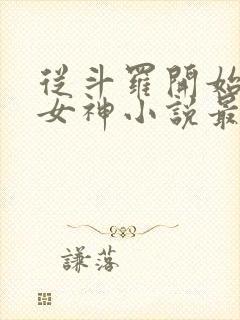 從斗羅開始
女神小說最
謙落